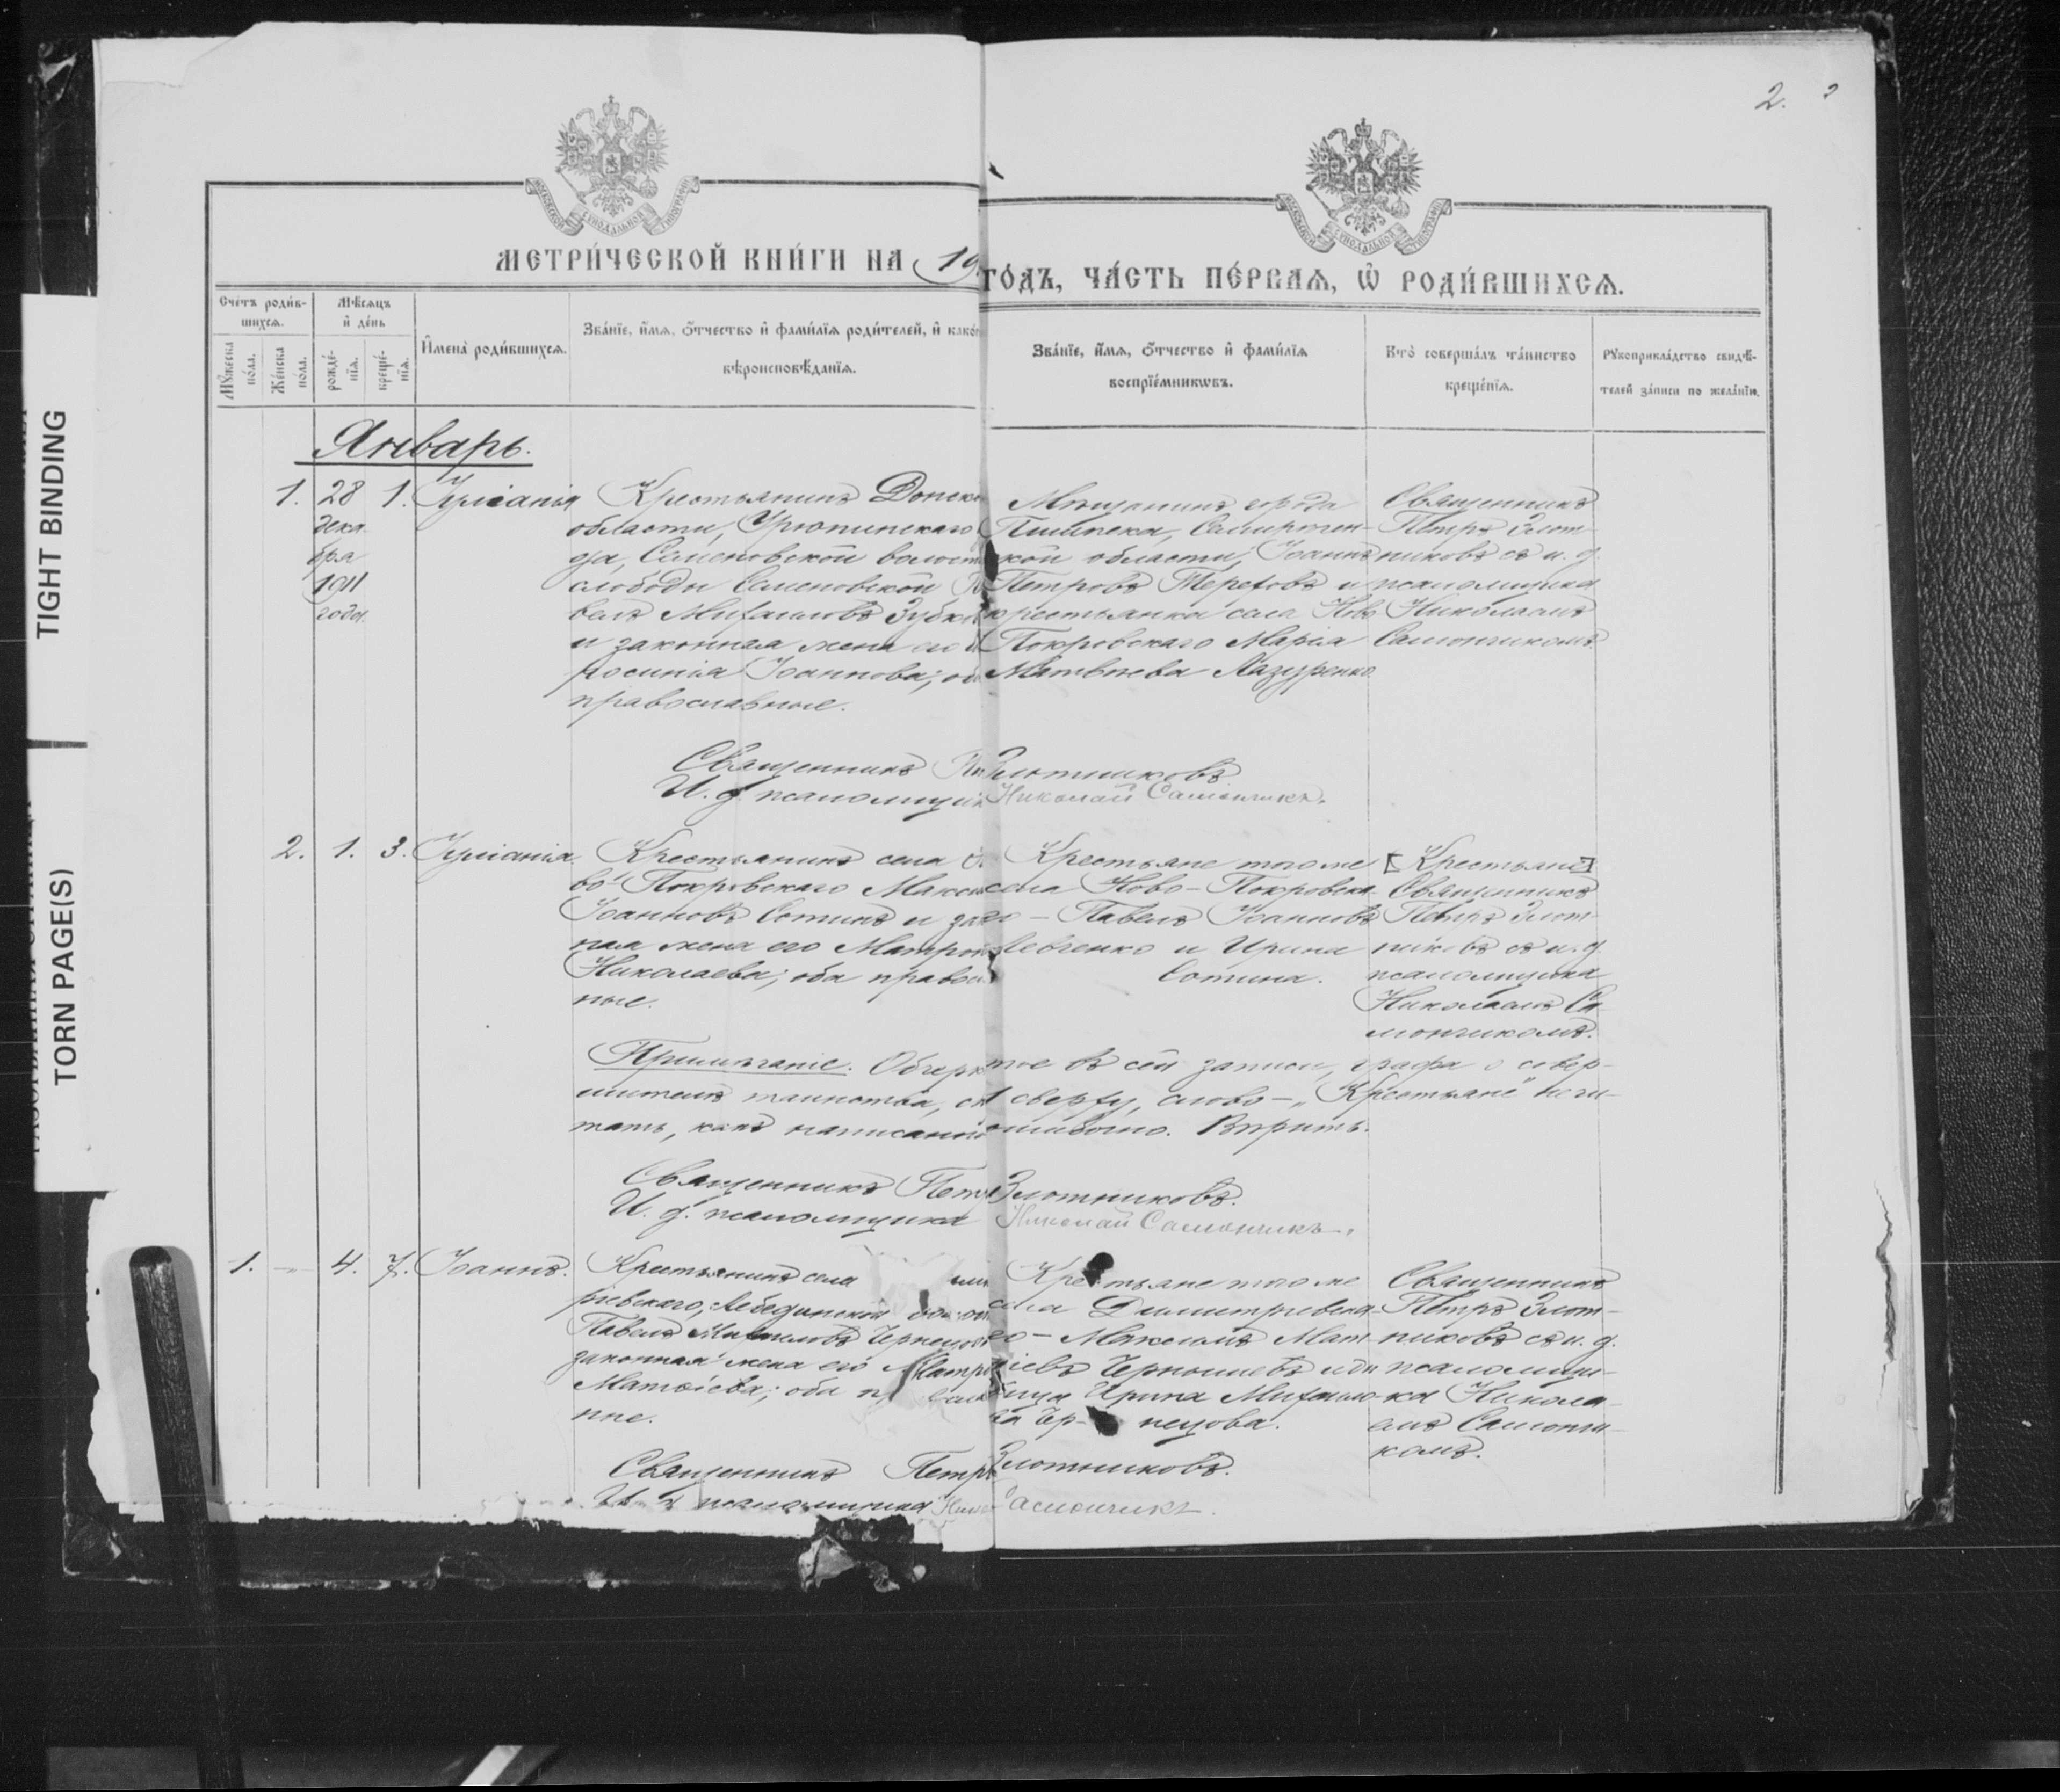 2.
TIGHT BINDING
TORN PAGE(S)
МЕТРИ́ЧЕСКОЙ КНИ́ГИ НА 19
ГО́ДЪ, ЧА́СТЬ ПЕ́РВАѦ, Ѡ҆ РОДИ́ВШИХСѦ.
Сче́тъ роди́в-
шихсѧ.
Мѣ́сѧцъ
и҆ де́нь
Мꙋ́жеска
по́ла.
Же́нска
по́ла.
рожде́-
нїѧ.
креще́-
нїѧ.
И҆мена̀ роди́вшихсѧ.
Зва́нїе, и҆́мѧ, ѻ҆́тчество и҆ фами́лїѧ роди́телей, и҆ како́г
вѣроисповѣ́данїѧ.
Зва́нїе, и҆́мѧ, ѻ҆́тчество и҆ фами́лїѧ
воспрїе́мникѡвъ.
Кто̀ соверша́лъ та́инство
креще́нїѧ.
Рꙋкоприкла́дство свидѣ́-
телей за́писи по жела́нїю.
Январь.
1. 28 1. Іуліанія
дека
бря
1911
года.
Крестьянинъ Донск
области, Урюпинскаго
да, Семеновской волост
слободы Семеновской
велъ Михаиловъ Зубк
и законная жена его
росинія Іоаннова; об
православные.
Мѣщанинъ города
Пишпека, Семирѣчен-
ской области, Іоаннъ
Петровъ Тереховъ и
крестьянка села Ново
Покровскаго Марѳа
Матвѣева Лазуренко
Священникъ
Петръ Злот-
никовъ съ и. д.
псаломщика
Николаемъ
Самончикомъ.
Священникъ Пе Злотниковъ
И. д. псаломщик Николай Самончикъ.
2. 1. 3. Іуліанія.
Крестьянинъ села
во Покровскаго Макси
Іоанновъ Сотинъ и зак
ная жена его Матрон
Николаева; оба правос
ные.
Крестьяне того же
села Ново-Покровска
го - Павелъ Іоанновъ
Левченко и Ирина
Сотина.
[Крестьяне]
Священникъ
Петръ Злот-
никовъ съ и. д.
псаломщика
Николаемъ Са
мончикомъ.
Примѣчаніе. Обчерк тое въ сей записи, графа о совер-
шителѣ таинства, сверху, слово - „Крестьяне" не чи-
тать, какъ написанно ошибочно. Вѣрить.
Священникъ Петр Злотниковъ.
И. д. псаломщика Николай Самончикъ.
1. - 4. 7. Іоаннъ.
Крестьянинъ села
ріевскаго, Лебединской волос
Павелъ Михаиловъ Чернецовъ
законная жена его Матр
Матѳіева; оба п
ные.
Крестьяне того же
села Димитріевска
го - Максимъ Мат
ѳіевъ Чернышевъ и дѣ
вица Ирина Михаило
ва Чер- нецова.
Священникъ
Петръ Злот-
никовъ съ и. д.
псаломщи-
ка Никола-
емъ Самончи-
комъ.
Священникъ Петръ Злотниковъ.
И. д. псаломщика Самончикъ.